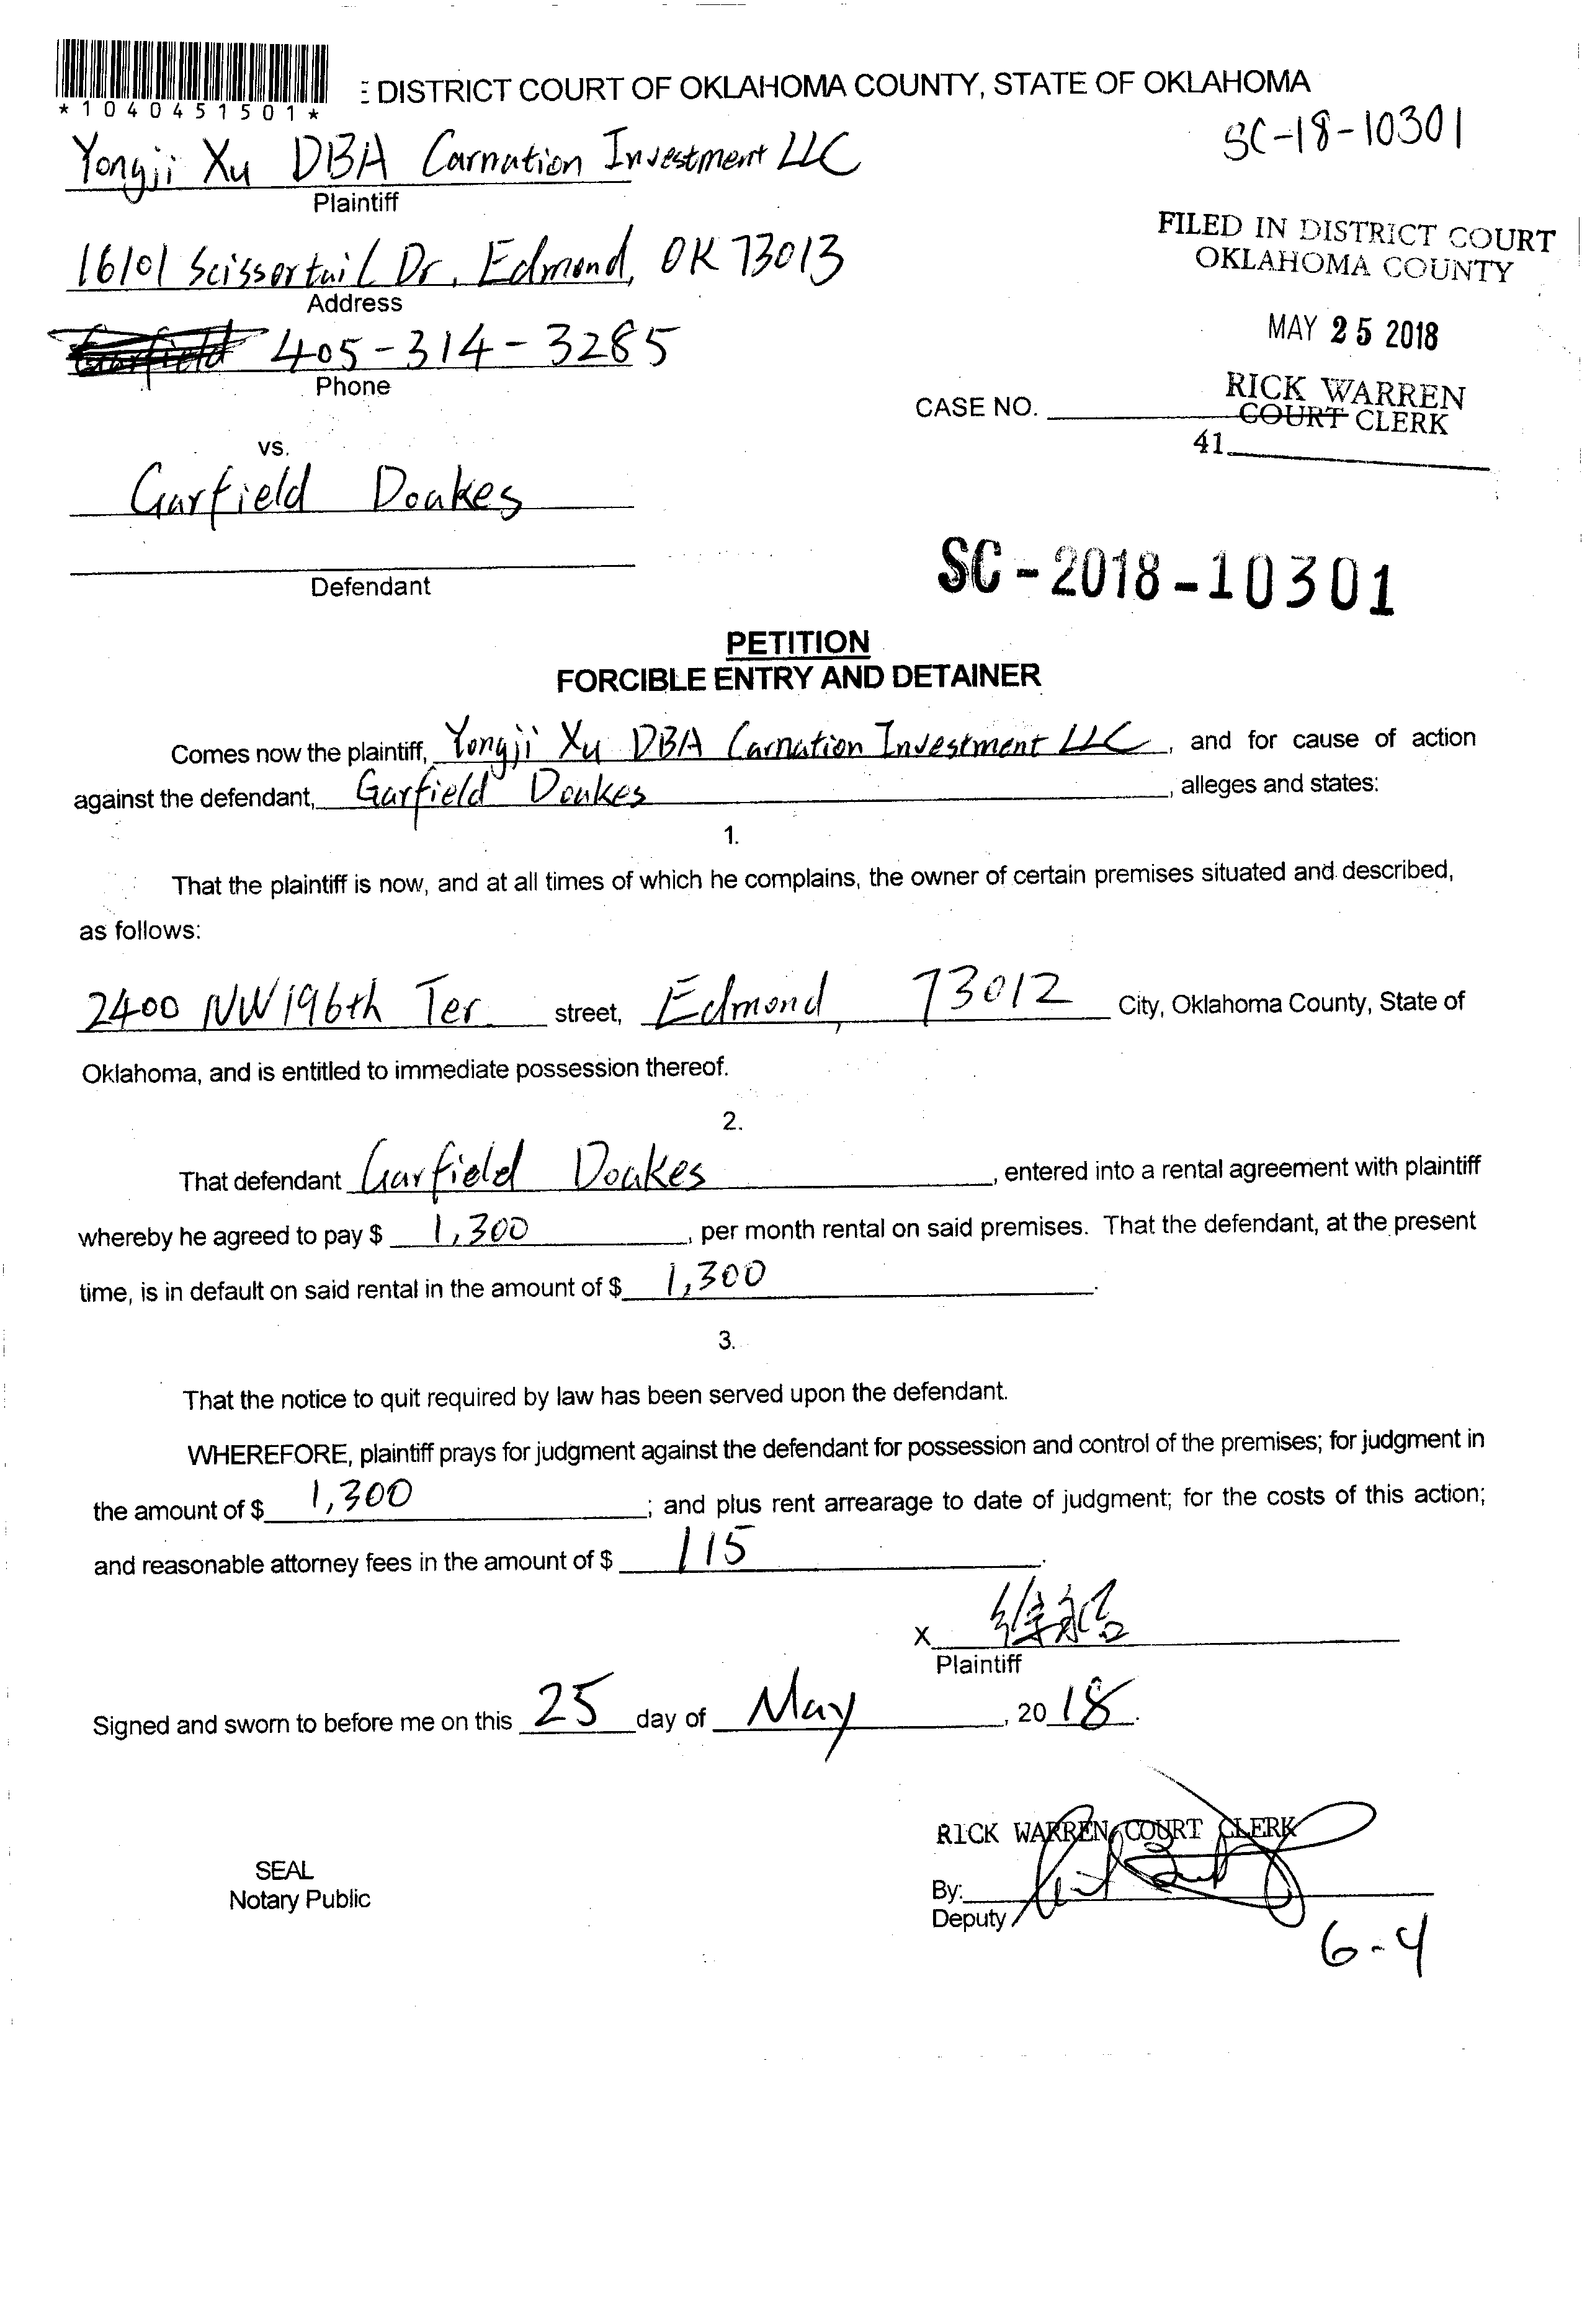 *1040451501*
DISTRICT COURT OF OKLAHOMA COUNTY, STATE OF OKLAHOMA
SC-18-10301
Yongji Xu DBA Carnation Investment LLC
Plaintiff
16101 Scissortail Dr, Edmond, OK 73013
Address
FILED IN DISTRICT COURT
OKLAHOMA COUNTY
MAY 25 2018
Garfield 405-314-3285
Phone
RICK WARREN
COURT CLERK
CASE NO.
41
vs.
Garfield Doakes
Defendant
SC-2018-10301
PETITION
FORCIBLE ENTRY AND DETAINER
Comes now the plaintiff, Yongji Xu DBA Carnation Investment LLC, and for cause of action
against the defendant, Garfield Doakes, alleges and states:
1.
That the plaintiff is now, and at all times of which he complains, the owner of certain premises situated and described,
as follows:
2400 NW 196th Ter. street, Edmond, 73012 City, Oklahoma County, State of
Oklahoma, and is entitled to immediate possession thereof.
2.
That defendant Garfield Doakes, entered into a rental agreement with plaintiff
whereby he agreed to pay $ 1,300, per month rental on said premises. That the defendant, at the present
time, is in default on said rental in the amount of $ 1,300.
3.
That the notice to quit required by law has been served upon the defendant.
WHEREFORE, plaintiff prays for judgment against the defendant for possession and control of the premises; for judgment in
the amount of $ 1,300; and plus rent arrearage to date of judgment; for the costs of this action;
and reasonable attorney fees in the amount of $ 115.
X 徐永
Plaintiff
Signed and sworn to before me on this 25 day of May, 2018.
RICK WARREN, COURT CLERK
SEAL
Notary Public
By:
Deputy
6-4